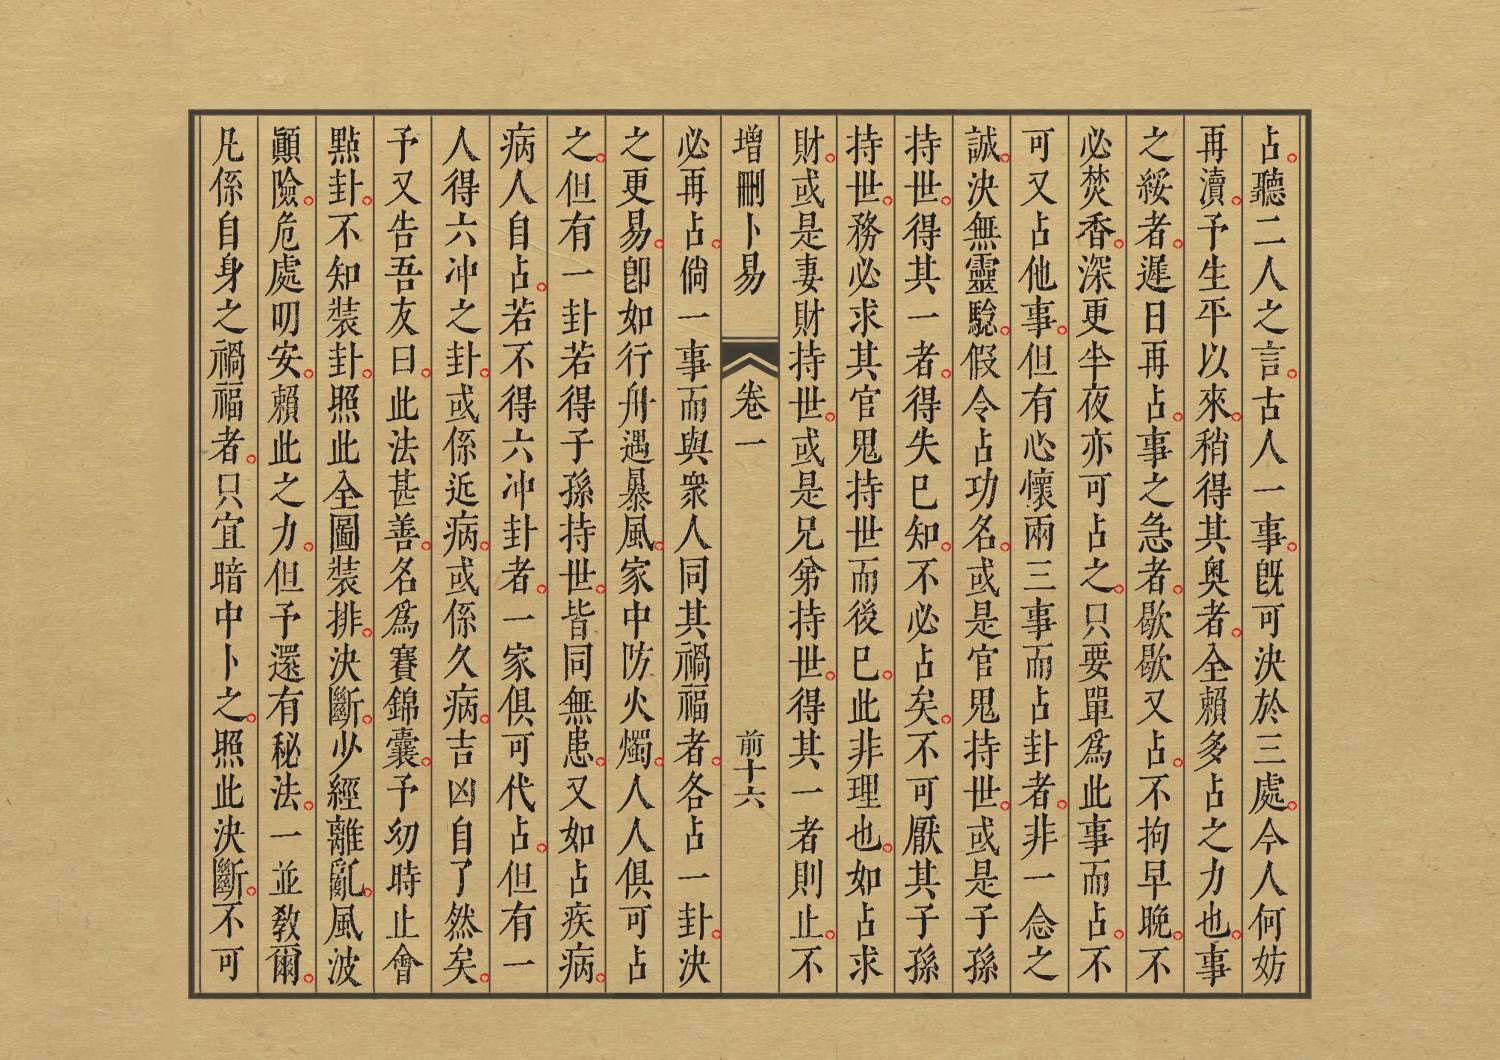 占。聽二人之言。古人一事。旣可決於三處。今人何妨
再瀆。予生平以來。稍得其奥者。全賴多占之力也。事
之綏者。遲日再占。事之急者。歇歇又占。不拘早晩。不
必焚香。深更半夜亦可占之。只要單爲此事而占。不
可又占他事。但有心懷兩三事而占卦者。非一念之
誠。決無靈騐。假令占功名。或是官鬼持世。或是子孫
持世。得其一者。得失巳知。不必占矣。不可厭其子孫
持世。務必求其官鬼持世而後巳。此非理也。如占求
財。或是妻財持世。或是兄弟持世。得其一者則止。不
增刪卜易 卷一 前十六
必再占。倘一事而與衆人同其禍福者。各占一卦。決
之更易。卽如行舟遇暴風。家中防火燭。人人俱可占
之。但有一卦若得子孫持世。皆同無患。又如占疾病。
病人自占。若不得六冲卦者。一家俱可代占。但有一
人得六冲之卦。或係近病。或係久病。吉凶自了然矣。
予又告吾友曰。此法甚善。名爲賽錦囊。予幼時止會
點卦。不知裝卦。照此全圖裝排。決斷。少經離亂。風波
顚險。危處叨安。賴此之力。但予還有秘法。一並敎爾。
凡係自身之禍福者。只宜暗中卜之。照此決斷。不可